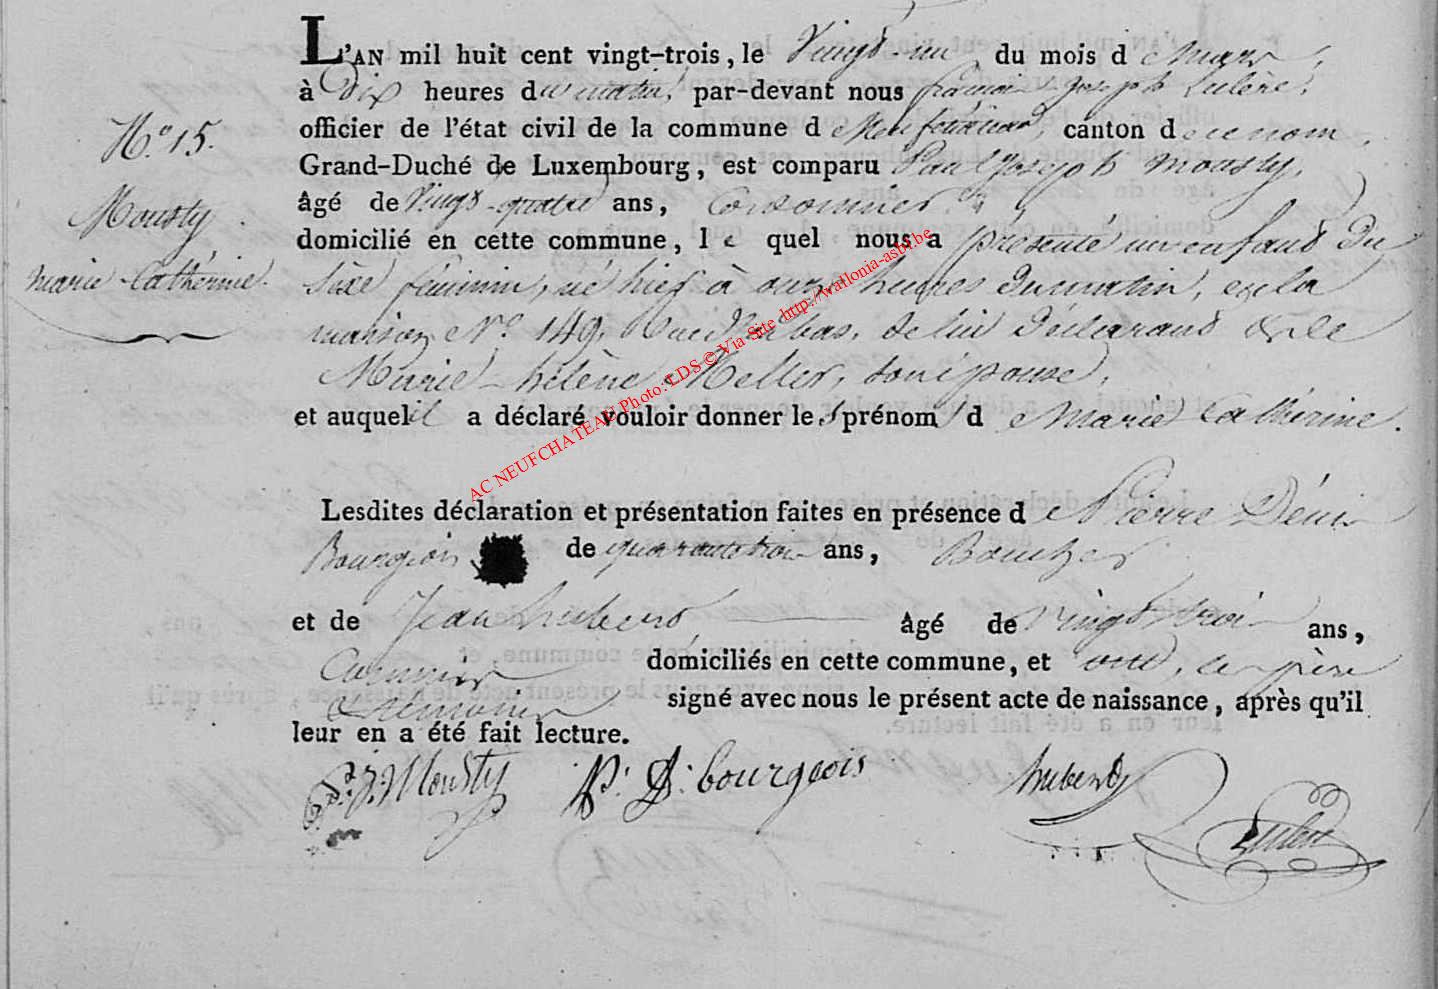 L'AN mil huit cent vingt-trois, le Vingt-un du mois d e Mars,
à Dix heures du matin, par-devant nous françois-Joseph Lulère,
officier de l'état civil de la commune d e Neufchâteau, canton d e ce nom,
N.º 15.
Grand-Duché de Luxembourg, est comparu Paul Joseph Mousty,
Mousty
âgé de Vingt-quatre ans, Cordonnier
domicilié en cette commune, l e quel nous a présenté un enfant Du
marie-Catherine.
Sexe féminin, né hier à onze heures Du matin, en la
maison N.º 149, de lui Déclarant & de
Marie-hélène Meller, son épouse,
et auquel il a déclaré vouloir donner les prénoms d e Marie Cathérine.
Lesdites déclaration et présentation faites en présence d e Pierre Dénis
Bourgeois de quarante trois ans, Boucher
et de Jean hubert âgé de Vingt trois ans,
domiciliés en cette commune, et ont, le père
signé avec nous le présent acte de naissance, après qu'il
& témoins
leur en a été fait lecture.
P. J. Mousty P. D. bourgeois hubert
AC NEUFCHATEAU Photo: LDS © Via Site http://wallonia-asbl.be